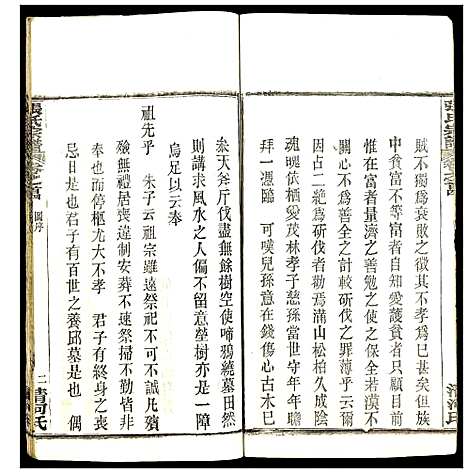 賊不獨爲衰敗之徵其不孝爲已甚矣但族
富不等富者自知愛護貧者只知目前
惟在富者量濟之善勉之使之保全若漠不
關心不爲善全之計較斫伐之罪薄乎云爾
因占二絕爲斫伐者勸焉 滿山松柏久成陰
魂魄依棲愛茂林孝子慈孫當世守年年瞻
拜一憑臨 可嘆兒孫意在錢傷心古木已
叅天斧斤伐盡無餘樹空使啼鴉繞墓田然
則講求風水之人偏不留意塋樹亦是一障
烏足以云奉
祖先乎 朱子云祖宗雖遠祭祀不可不誠凡殯
殮無禮居喪違制安葬不速祭掃不勤皆非
奉也而停柩尤大不孝 君子有終身之喪
忌日是也君子有百世之養邱墓是也 偶
張氏宗譜
卷之首
圖序
二
清河氏
張氏宗譜
清河氏